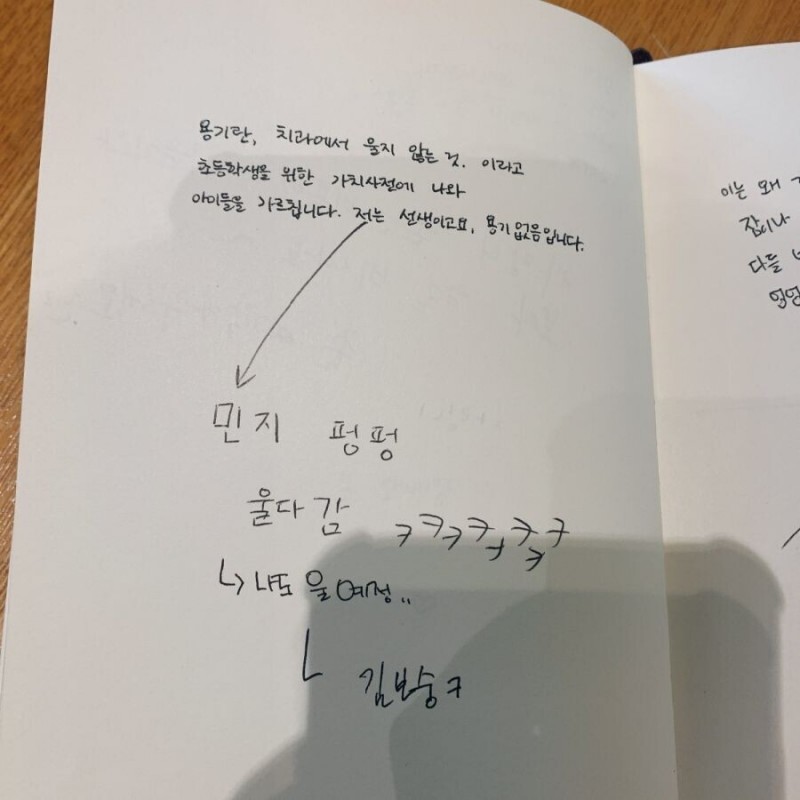 용기란, 치과에서 울지 않는 것. 이라고
초등학생을 위한 가치사전에 나와
아이들을 가르칩니다. 저는 선생이고요, 용기없음입니다.
민지 펑펑
울다 감 ㅋㅋㅋㅋㅋㅋㅋㅋ
↳ 나도 울 예정..
ㄴ 김보숭ㅋ
이는 왜
잠이나
다들
엉엉